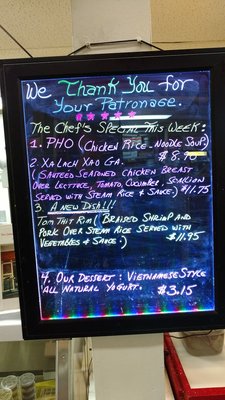 We Thank You for
Your Patronage.
The Chef's Special This Week:
1. PHO (Chicken Rice-Noodle Soup)
$8.70
2. Xa Lach Xao Ga.
(Sauteed Seasoned Chicken Breast
Over Lettuce, Tomato, Cucumber, Scallion
Served with Steam Rice & Sauce.) $11.75
3 A New Dish!!
Tom Thit Rim (Braised Shrimp And
Pork Over Steam Rice Served with
Vegetables & Sauce.) $11.95
4. Our Dessert: Vietnamese Style
All Natural Yogurt. $3.15